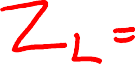 Z_L =